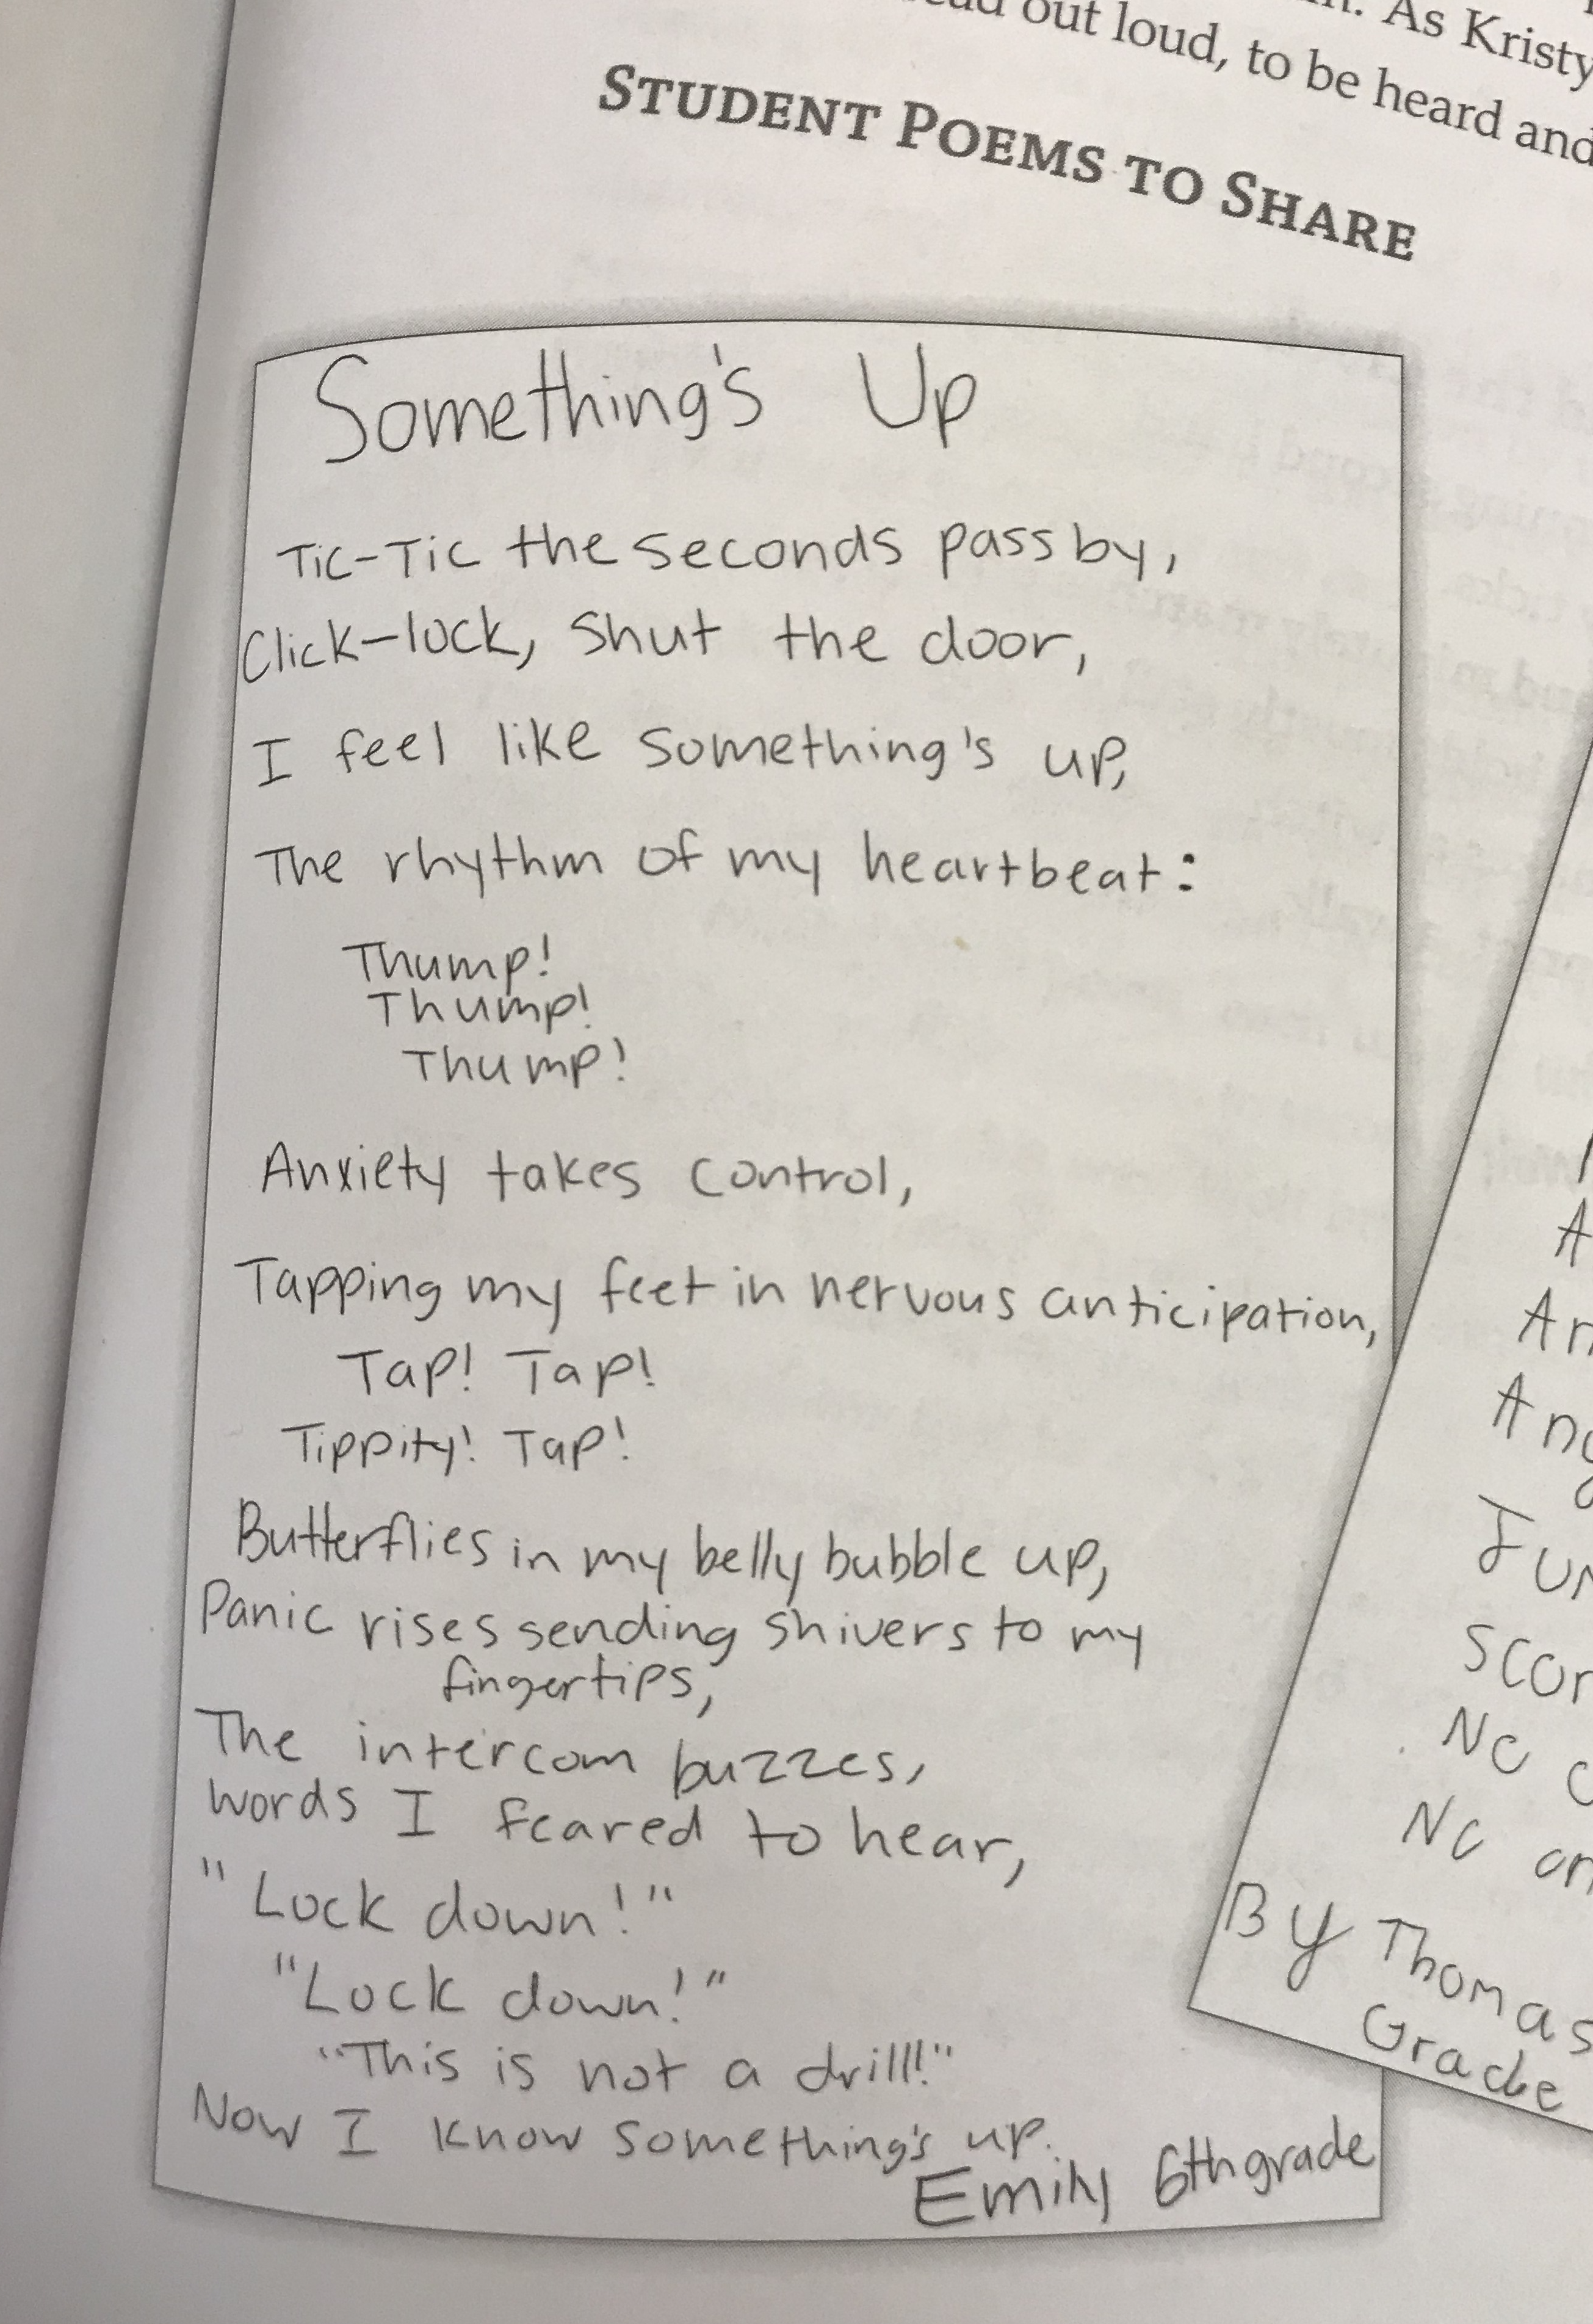 As Kristy
out loud, to be heard and
STUDENT POEMS TO SHARE
Something's Up
Tic-Tic the seconds pass by,
Click-lock, shut the door,
I feel like something's up,
The rhythm of my heartbeat:
Thump!
Thump!
Thump!
Anxiety takes control,
Tapping my feet in nervous anticipation,
Tap! Tap!
Tippity! Tap!
Butterflies in my belly bubble up,
Panic rises sending shivers to my
fingertips,
The intercom buzzes,
words I feared to hear,
"Lock down!"
"Lock down!"
"This is not a drill!"
Now I know something's up.
Emily 6th grade
By Thomas
Grade